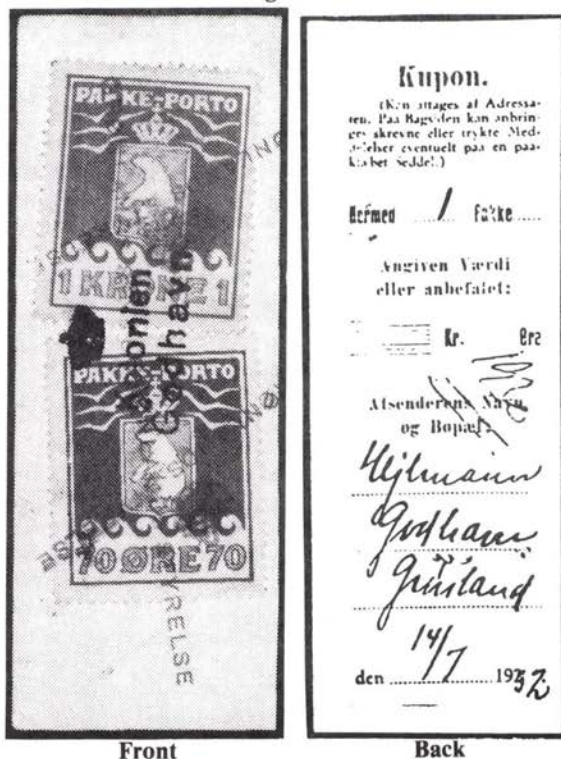 PAKKE-PORTO
1 KRONE 1
Kolonien
Godhavn
PAKKE-PORTO
70 ØRE 70
STYRELSE
Front
Kupon.
(Kan aftages af Adressa-
ten. Paa Bagsiden kan anbrin-
ges skrevne eller trykte Med-
delelser eventuelt paa en paa-
klæbet Seddel.)
Hermed 1 Pakke
Angiven Værdi
eller anbefalet:
Kr. Øre
Afsenderens Navn
og Bopæl:
Hejlmann
Godhavn
Grønland
14/7
den 1932
Back